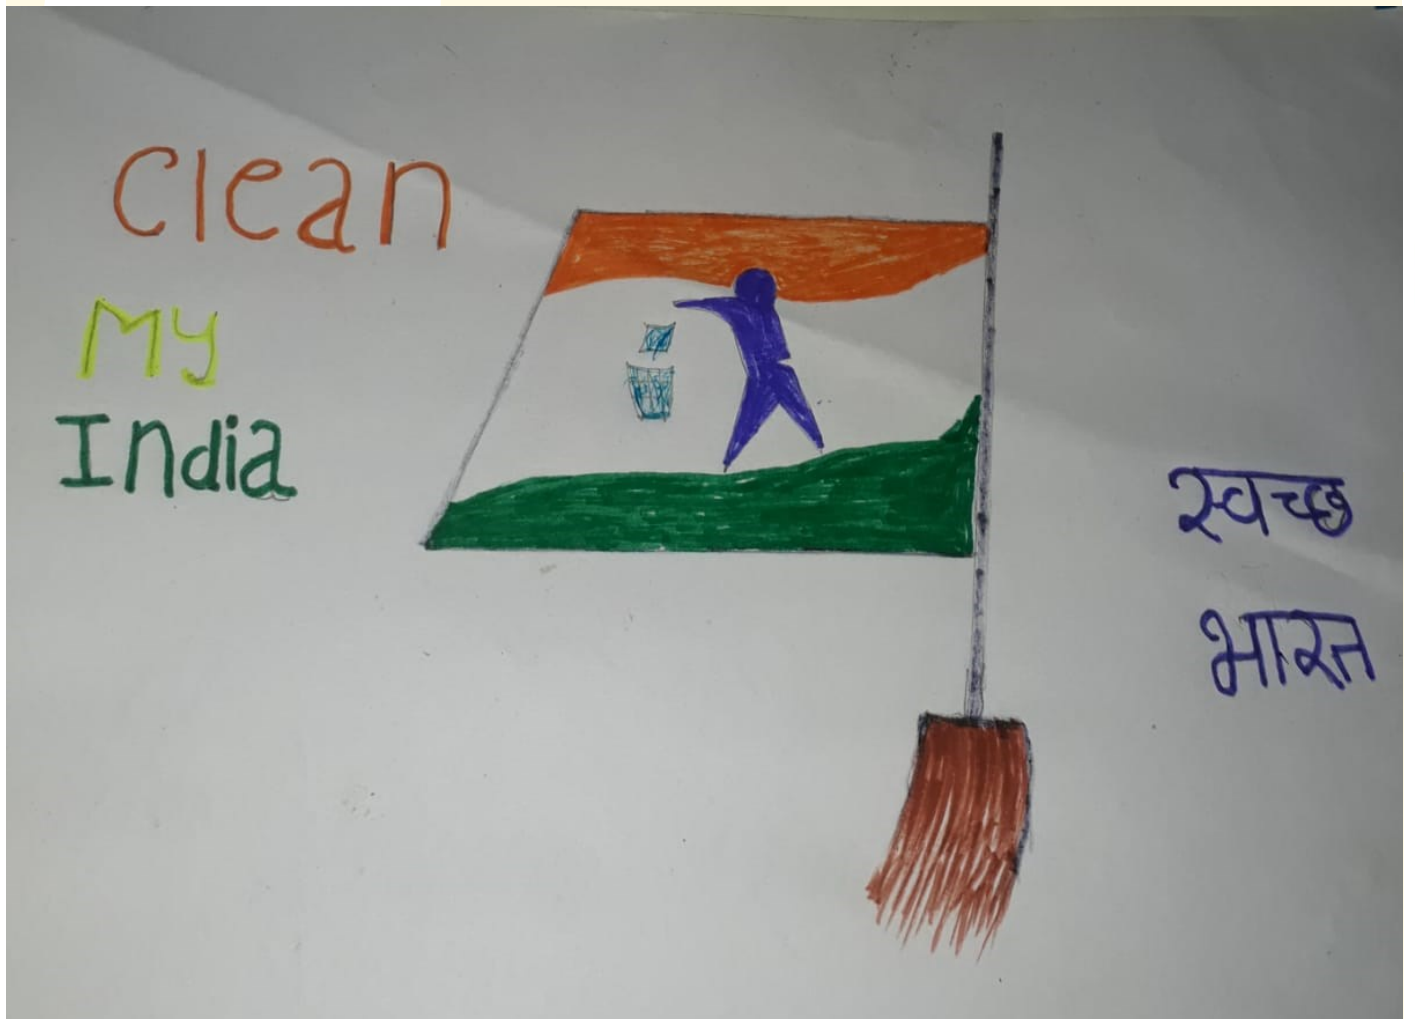 Clean
My
India
स्वच्छ
भारत